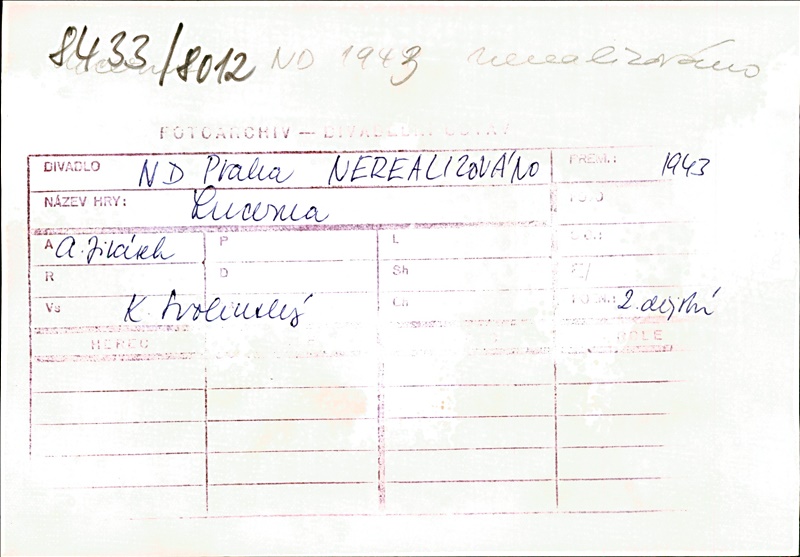 8433/8012 ND 1943 nerealizováno
FOTOARCHIV — DIVADELNÍ ÚSTAV
DIVADLO ND Praha NEREALIZOVÁNO PREM.: 1943
NÁZEV HRY: Lucerna FOTO
A A. Jirásek P L
R D Sh
Vs K. Svolinský Ch POZN.: 2. dějství
HEREC ROLE